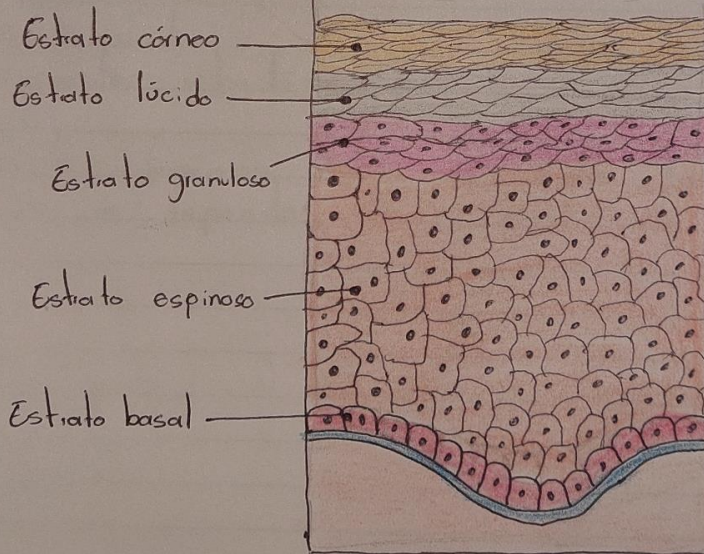 Estrato córneo
Estrato lúcido
Estrato granuloso
Estrato espinoso
Estrato basal